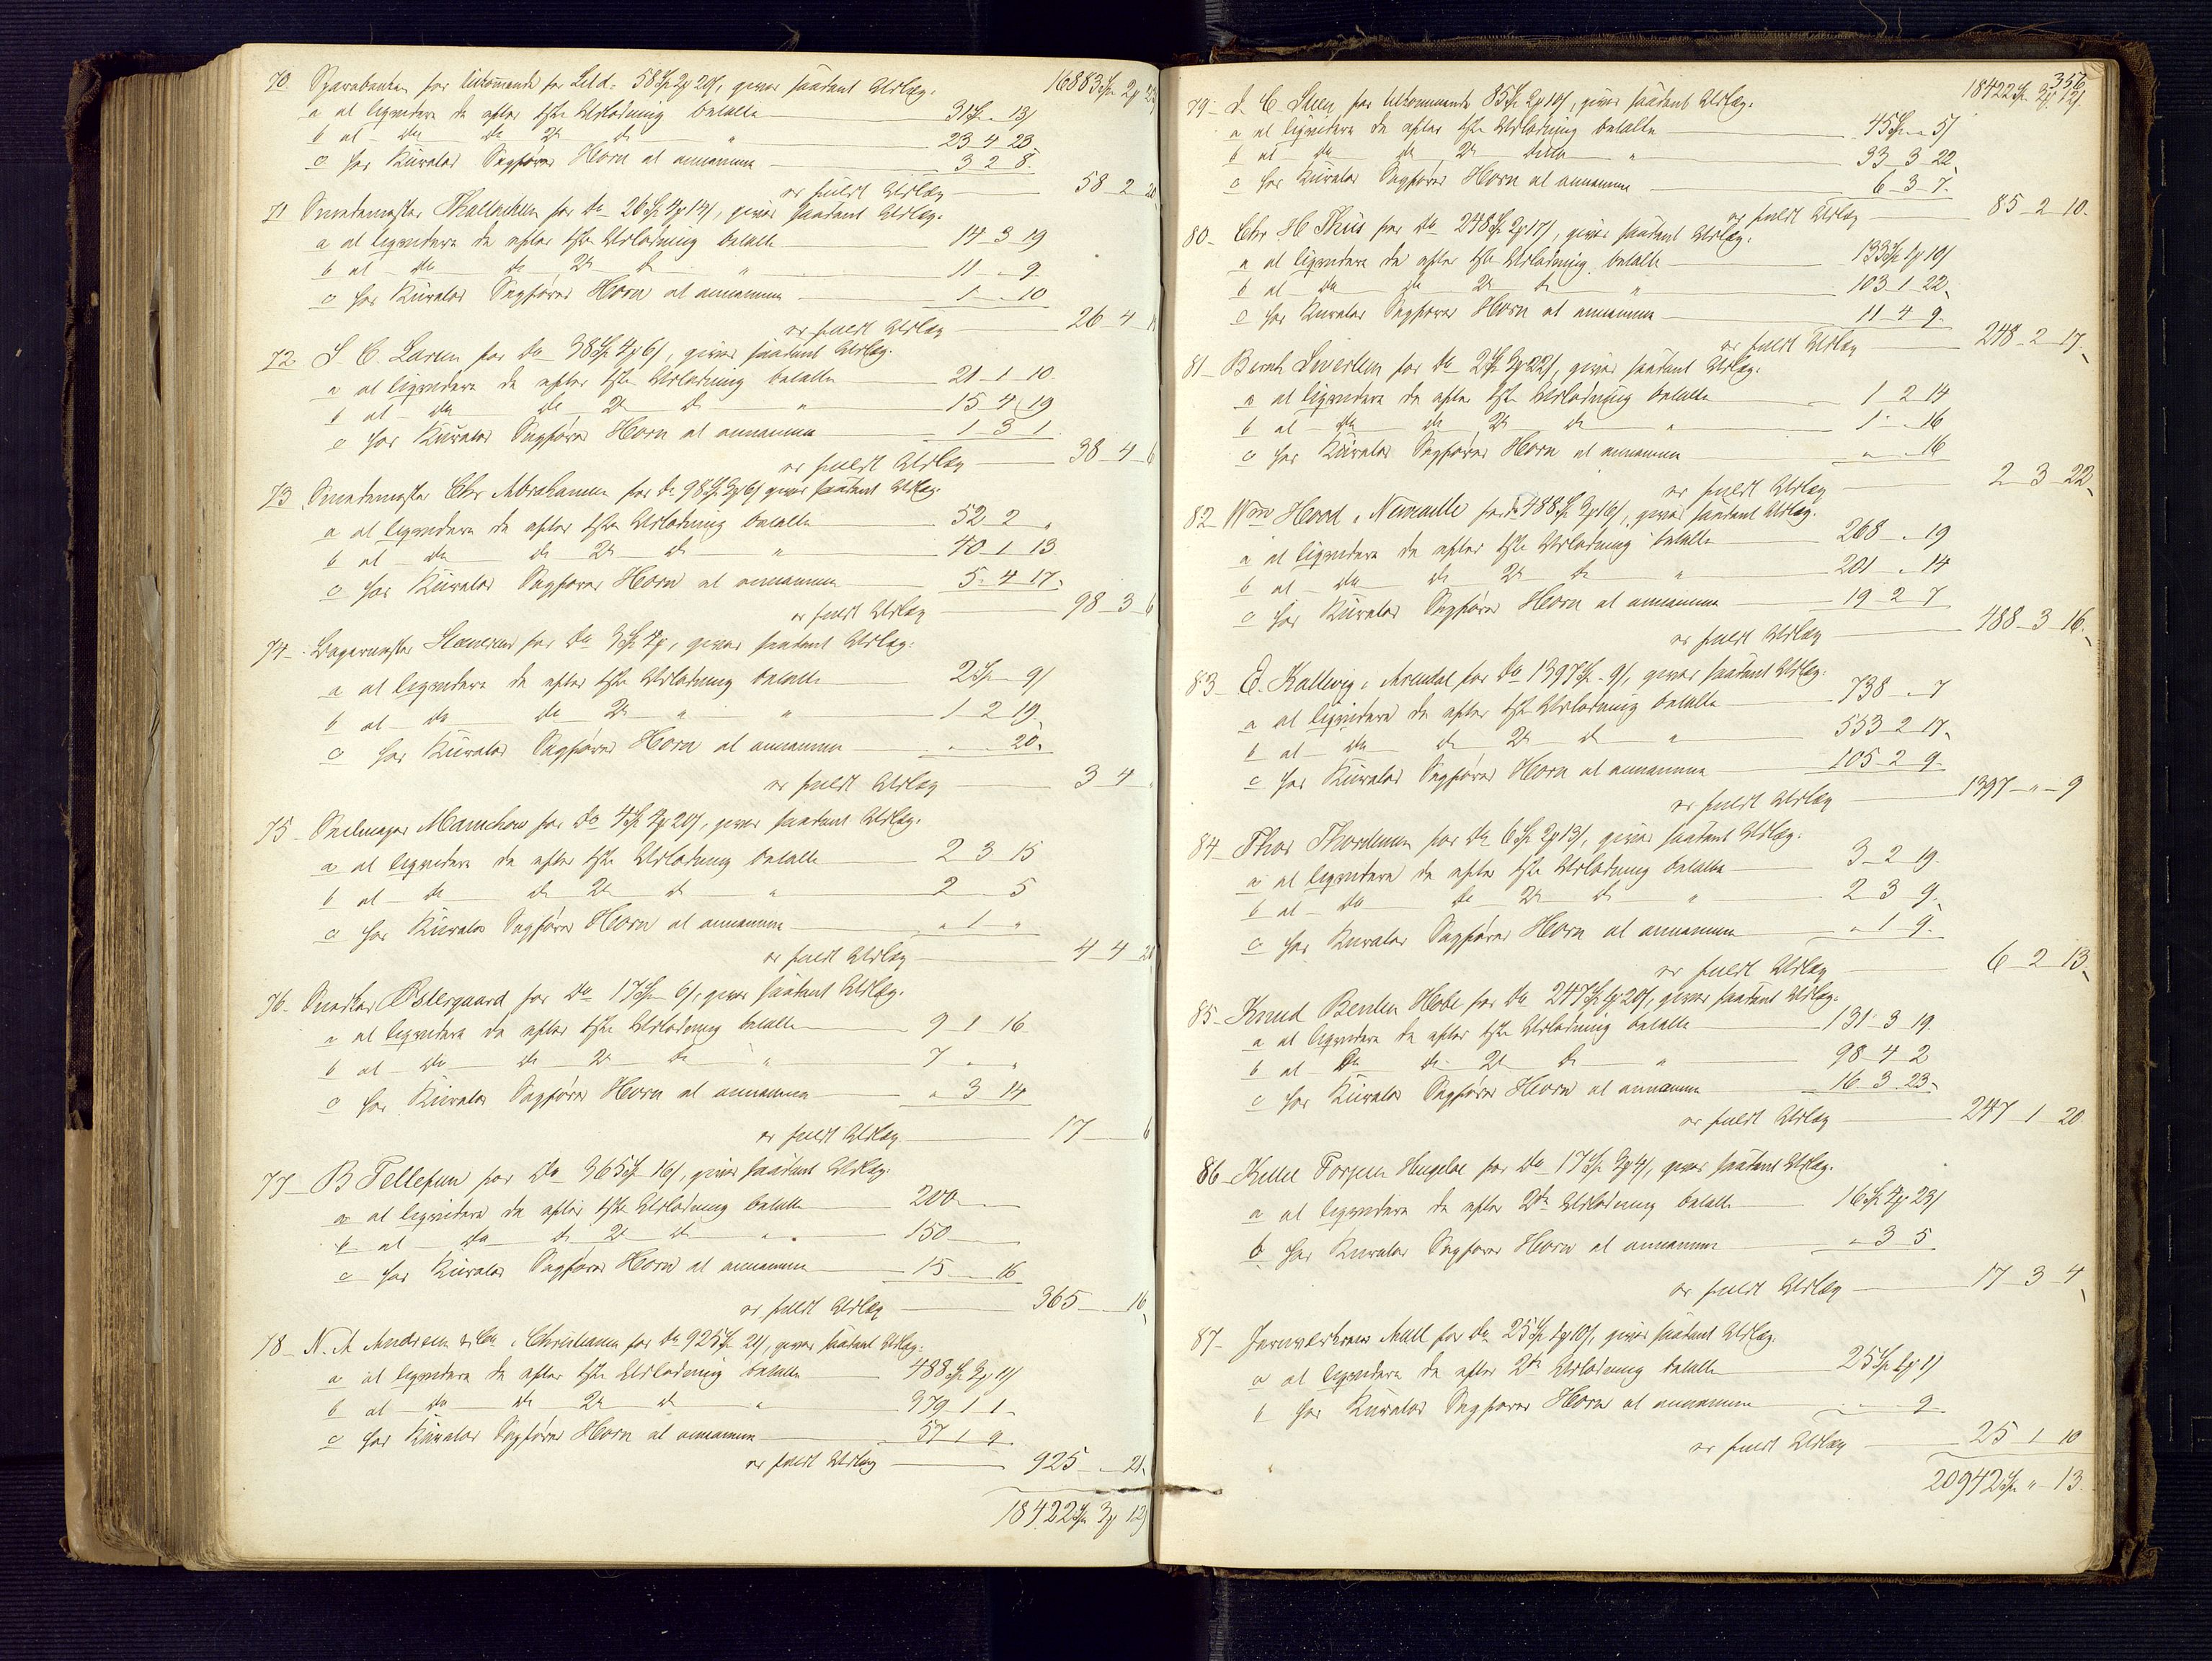 16883 Sp 2 ℔ 22
70 Sparebanken for tilkommende for Litd. 58 Sp 2 ℔ 20 s, gives saadant Udlæg.
a at liqvidere de efter 1ste Udlodning betalte 31 Sp „ 13 s
b at do do 2d do „ 23 4 23
c hos Kurator Sagfører Horn at annamme 3 2 8
er fuldt Udlæg 58 2 20
71 Smedemester Thallachsen for do 26 Sp 4 ℔ 14 s, gives saadant Udlæg.
a at liqvidere de efter 1ste Udlodning betalte 14 3 19
b at do do 2d do „ 11 „ 9
c hos Kurator Sagfører Horn at annamme 1 „ 10
er fuldt Udlæg 26 4
72 S. C. Larsen for do 38 Sp 4 ℔ 6 s, gives saadant Udlæg.
a at liqvidere de efter 1ste Udlodning betalte 21 1 10
b at do do 2d do „ 15 4 19
c hos Kurator Sagfører Horn at annamme 1 3 1
er fuldt Udlæg 38 4 6
73 Smedemester Chr Abrahamsen for do 98 Sp 3 ℔ 6 s gives saadant Udlæg.
a at liqvidere de efter 1ste Udlodning betalte 52 2 „
b at do do 2d do „ 40 1 13
c hos Kurator Sagfører Horn at annamme 5 4 17
er fuldt Udlæg 98 3 6
74 Bagermester for do 3 Sp 4 ℔, gives saadant Udlæg.
a at liqvidere de efter 1ste Udlodning betalte 2 Sp „ 9 s
b at do do 2d „ „ 1 2 19
c hos Kurator Sagfører Horn at annamme „ „ 20
er fuldt Udlæg 3 4
75 Seilmager Manschow for do 4 Sp 4 ℔ 20 s, gives saadant Udlæg.
a at liqvidere de efter 1ste Udlodning betalte 2 3 15
b at do do 2d do „ 2 „ 5
c hos Kurator Sagfører Horn at annamme „ 1 „
er fuldt Udlæg 4 4 20
76 Snedker Østergaard for do 17 Sp „ 6 s, gives saadant Udlæg.
a at liqvidere de efter 1ste Udlodning betalte 9 1 16
b at do do 2d do „ 7 „ „
c hos Kurator Sagfører Horn at annamme „ 3 14
er fuldt Udlæg 17 6
77 B Tellefsen for do 365 Sp 16 s, gives saadant Udlæg.
a at liqvidere de efter 1ste Udlodning betalte 200
b at do do 2d do „ 150
c hos Kurator Sagfører Horn at annamme 15 „ 16
er fuldt Udlæg 365 „ 16
78 N. A Andresen & Co i Christiania for do 925 Sp 21 s, gives saadant Udlæg.
a at liqvidere de efter 1ste Udlodning betalte 488 Sp 3 ℔ 11 s
b at do do 2d do „ 379 1 1
c hos Kurator Sagfører Horn at annamme 57 1 9
er fuldt Udlæg 925 „ 21
18422 Sp 3 ℔ 12 s
356
18422 Sp 3 ℔ 12 s
79 for tilkommende 85 Sp 2 ℔ 10 s, gives saadant Udlæg.
a at liqvidere de efter 1ste Udlodning betalte 45 Sp „ 5 s
b at do do 2d ditto „ 33 3 22
c hos Kurator Sagfører Horn at annamme 6 3 7
er fuldt Udlæg 85 2 10
80 Chr H Thiis for do 248 Sp 2 ℔ 17 s, gives saadant Udlæg.
a at liqvidere de efter 1ste Udlodning betalte 133 Sp 1 ℔ 10 s
b at do do 2d do „ 103 1 22
c hos Kurator Sagfører Horn at annamme 11 4 9
er fuldt Udlæg 248 2 17
81 Bernt Sivertsen for do 2 Sp 3 ℔ 22 s, gives saadant Udlæg.
a at liqvidere de efter 1ste Udlodning betalte 1 2 14
b at do do 2d do „ 1 „ 16
c hos Kurator Sagfører Horn at annamme „ „ 16
er fuldt Udlæg 2 3 22
82 Wm Hood i Newcastle for do 488 Sp 3 ℔ 16 s, gives saadant Udlæg.
a at liqvidere de efter 1ste Udlodning betalte 268 „ 19
b at do do 2d do „ 201 „ 14
c hos Kurator Sagfører Horn at annamme 19 2 7
er fuldt Udlæg 488 3 16
83 E. Kallevig i Arendal for do 1397 Sp „ 9 s, gives saadant Udlæg.
a at liqvidere de efter 1ste Udlodning betalte 738 „ 7
b at do do 2d do „ 553 2 17
c hos Kurator Sagfører Horn at annamme 105 2 9
er fuldt Udlæg 1397 „ 9
84 Thor Thordsen for do 6 Sp 2 ℔ 13 s, gives saadant Udlæg.
a at liqvidere de efter 1ste Udlodning betalte 3 2 19
b at do do 2d do „ 2 3 9
c hos Kurator Sagfører Horn at annamme „ 1 9
er fuldt Udlæg 6 2 13
85 Knud Bentsen Hobe for do 247 Sp 1 ℔ 20 s, gives saadant Udlæg.
a at liqvidere de efter 1ste Udlodning betalte 131 3 19
b at do do 2d do „ 98 4 2
c hos Kurator Sagfører Horn at annamme 16 3 23
er fuldt Udlæg 247 1 20
86 Kittel Torjusen for do 17 Sp 3 ℔ 4 s, gives saadant Udlæg.
a at liqvidere de efter 2de Udlodning betalte 16 Sp 4 ℔ 23 s
b hos Kurator Sagfører Horn at annamme „ 3 5
er fuldt Udlæg 17 3 4
87 Jernværkerne for do 25 Sp 1 ℔ 10 s, gives saadant Udlæg.
a at liqvidere de efter 2de Udlodning betalte 25 Sp 1 ℔ 1 s
b hos Kurator Sagfører Horn at annamme „ „ 9
er fuldt Udlæg 25 1 10
20942 Sp „ 13